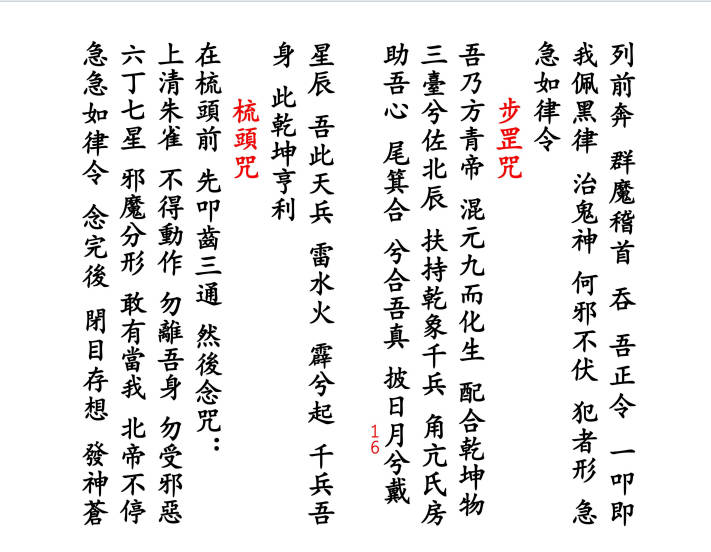 列前奔 群魔稽首 吞 吾正令 一叩即
我佩黑律 治鬼神 何邪不伏 犯者形 急
急如律令
步罡咒
吾乃方青帝 混元九而化生 配合乾坤物
三臺兮佐北辰 扶持乾象千兵 角亢氏房
助吾心 尾箕合 兮合吾真 披日月兮戴
16
星辰 吾此天兵 雷水火 霹兮起 千兵吾
身 此乾坤亨利
梳頭咒
在梳頭前 先叩齒三通 然後念咒：
上清朱雀 不得動作 勿離吾身 勿受邪惡
六丁七星 邪魔分形 敢有當我 北帝不停
急急如律令 念完後 閉目存想 發神蒼